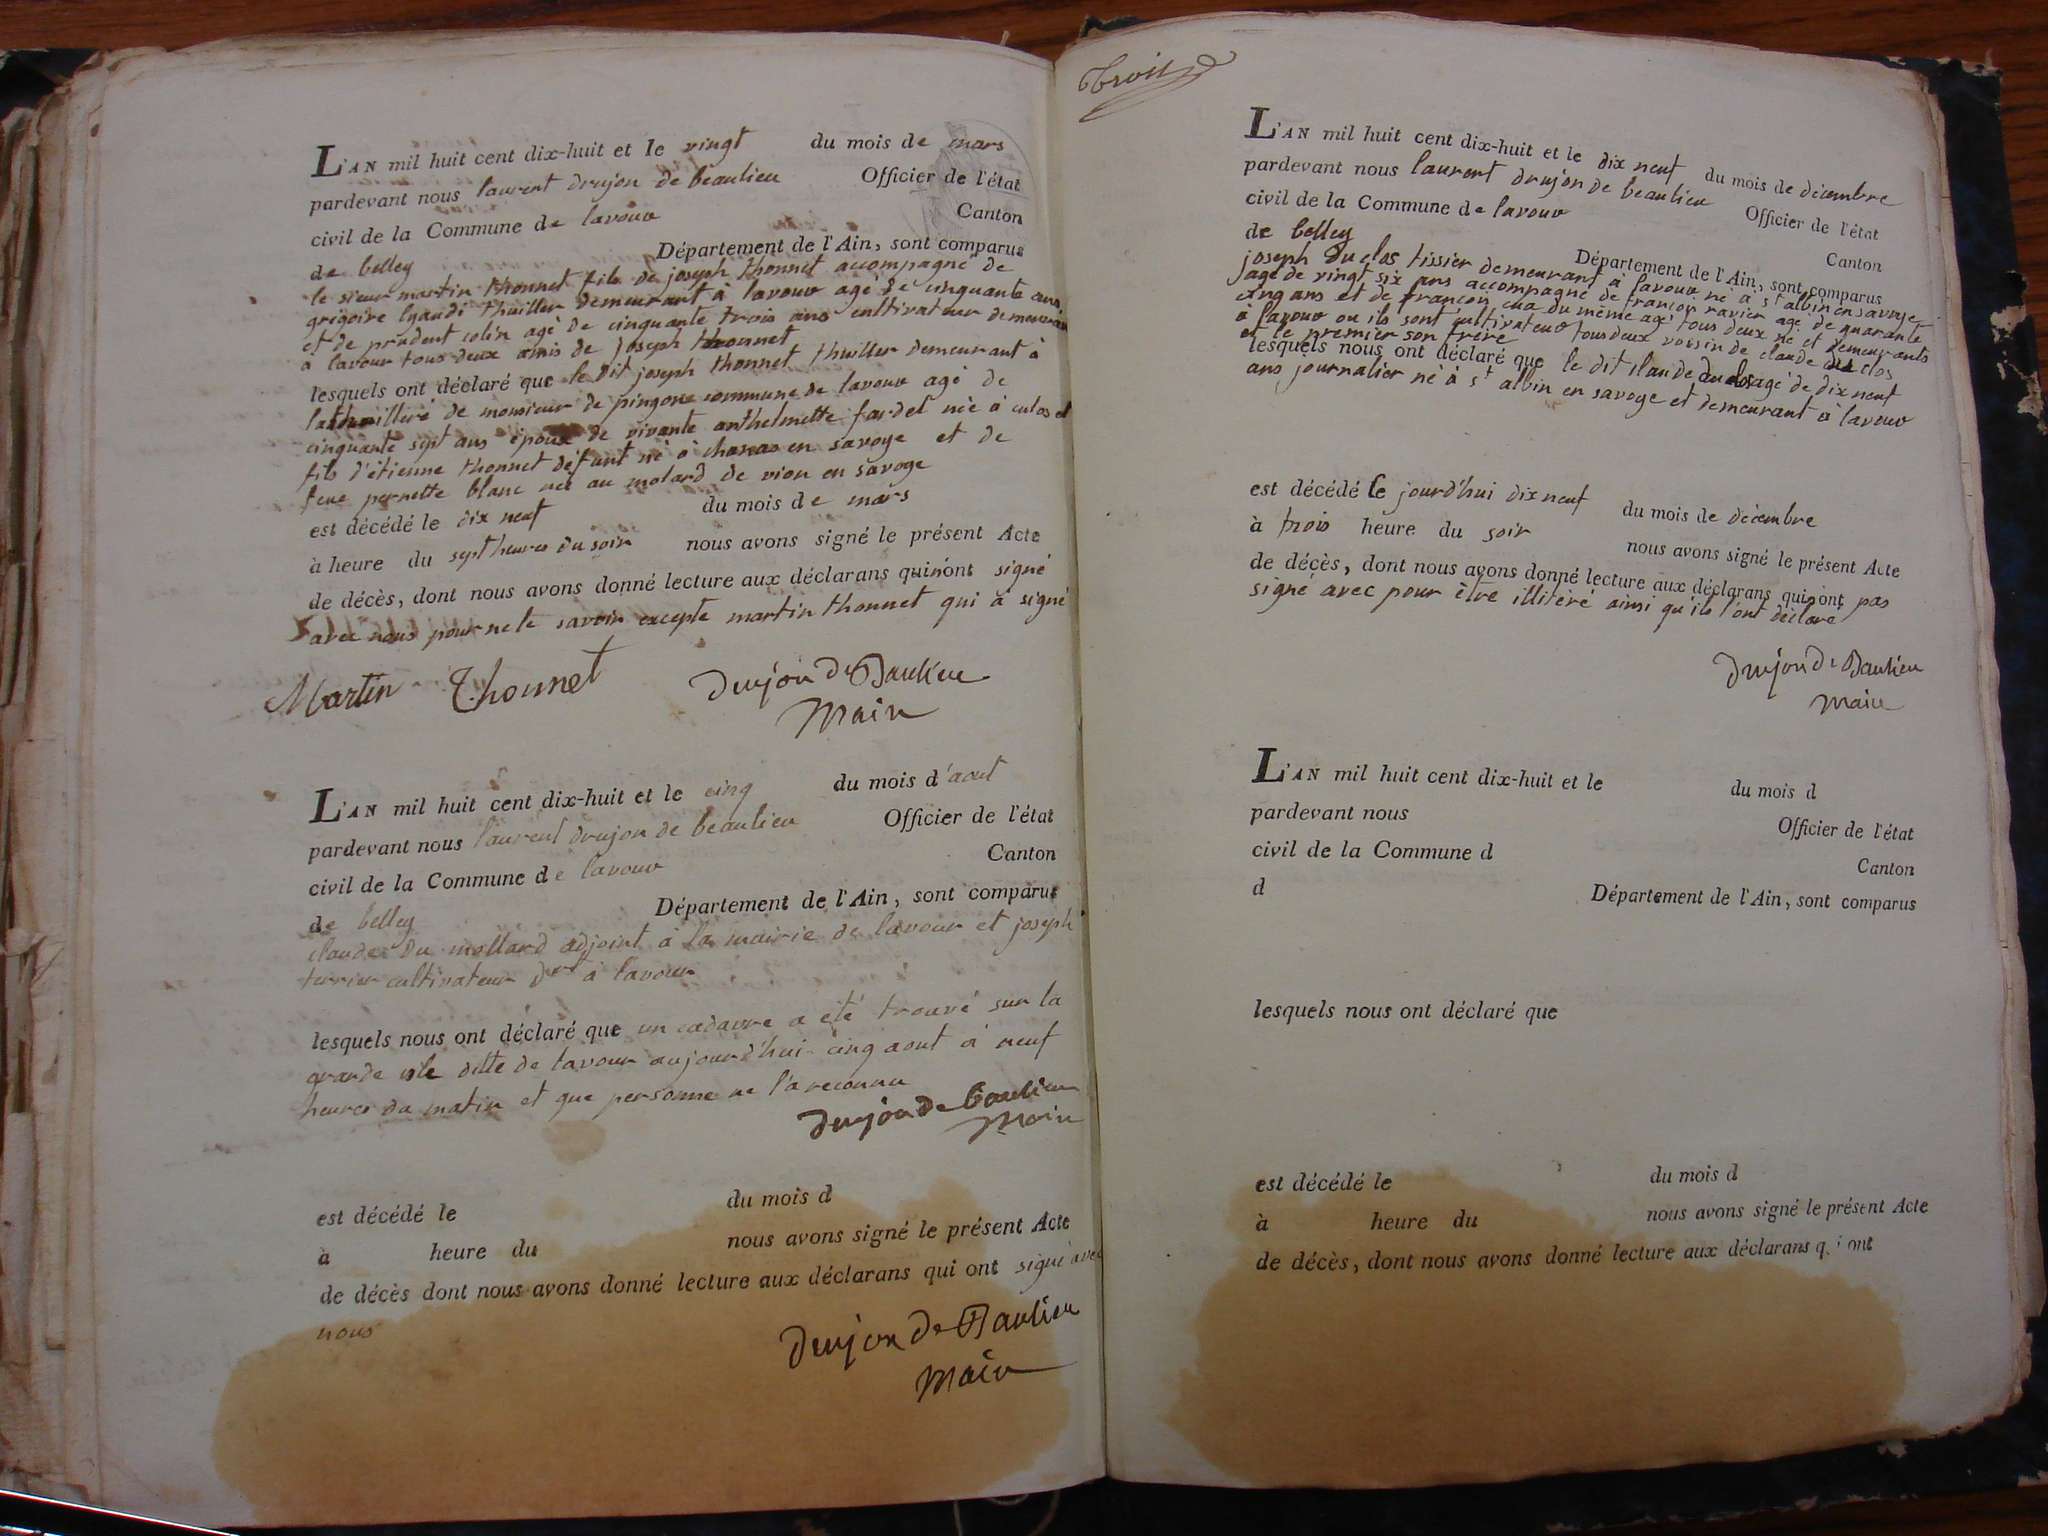 L'AN mil huit cent dix-huit et le vingt du mois de mars
pardevant nous laurent drujon de beaulieu Officier de l'état
civil de la Commune de lavour Canton
de belley Département de l'Ain, sont comparus
le sieur martin thonnet fils de joseph thonnet accompagné de
grigoire thuiller demeurant à lavour agé de cinquante ans
et de prudent colin agé de cinquante trois ans cultivateur demeurant
à lavour tous deux amis de joseph thonnet
lesquels ont déclaré que le dit joseph thonnet thuiller demeurant à
de monsieur de pingone commune de lavour agé de
cinquante sept ans époux de vivante anthelmette fardel née à culos et
fils d'étienne thonnet défunt né à chanas en savoye et de
feue pernette blanc née au molard de vion en savoye
est décédé le dix neuf du mois de mars
à heure du sept heures du soir nous avons signé le présent Acte
de décès, dont nous avons donné lecture aux déclarans qui n'ont signé
avec nous pour ne le savoir excepte martin thonnet qui à signé
Martin Thonnet drujon de Baulieu
Maire
L'AN mil huit cent dix-huit et le cinq du mois d'aout
pardevant nous laurent drujon de beaulieu Officier de l'état
civil de la Commune de lavour Canton
de belley Département de l'Ain, sont comparus
claude du mollard adjoint à la mairie de lavour et joseph
terrier cultivateur drt à lavour
lesquels nous ont déclaré que un cadavre a été trouvé sur la
grande isle ditte de lavour aujourd'hui cinq aout à neuf
heures du matin et que personne ne l'a reconnu
drujon de baulieu
Maire
est décédé le du mois d
à heure du nous avons signé le présent Acte
de décès dont nous avons donné lecture aux déclarans qui ont signé avec
nous
drujon de Baulieu
Maire
Trois
L'AN mil huit cent dix-huit et le dix neuf du mois de décembre
pardevant nous laurent drujon de beaulieu Officier de l'état
civil de la Commune de lavour Canton
de belley Département de l'Ain, sont comparus
joseph du clos tissier demeurant à lavour né à st albin en savoye
agé de vingt six ans accompagné de françois ravier agé de quarante
cinq ans et de françois du même agé tous deux né et demeurants
à lavour ou ils sont cultivateur tous deux voisin de claude du clos
et le premier son frère
lesquels nous ont déclaré que le dit claude du clos agé de dix neuf
ans journalier né à st albin en savoye et demeurant à lavour
est décédé le jourd'hui dix neuf du mois de décembre
à trois heure du soir nous avons signé le présent Acte
de décès, dont nous avons donné lecture aux déclarans qui n'ont pas
signé avec pour être illitéré ainsi qu'ils l'ont déclaré
drujon de Baulieu
Maire
L'AN mil huit cent dix-huit et le du mois d
pardevant nous Officier de l'état
civil de la Commune d Canton
d Département de l'Ain, sont comparus
lesquels nous ont déclaré que
est décédé le du mois d
à heure du nous avons signé le présent Acte
de décès, dont nous avons donné lecture aux déclarans qui ont